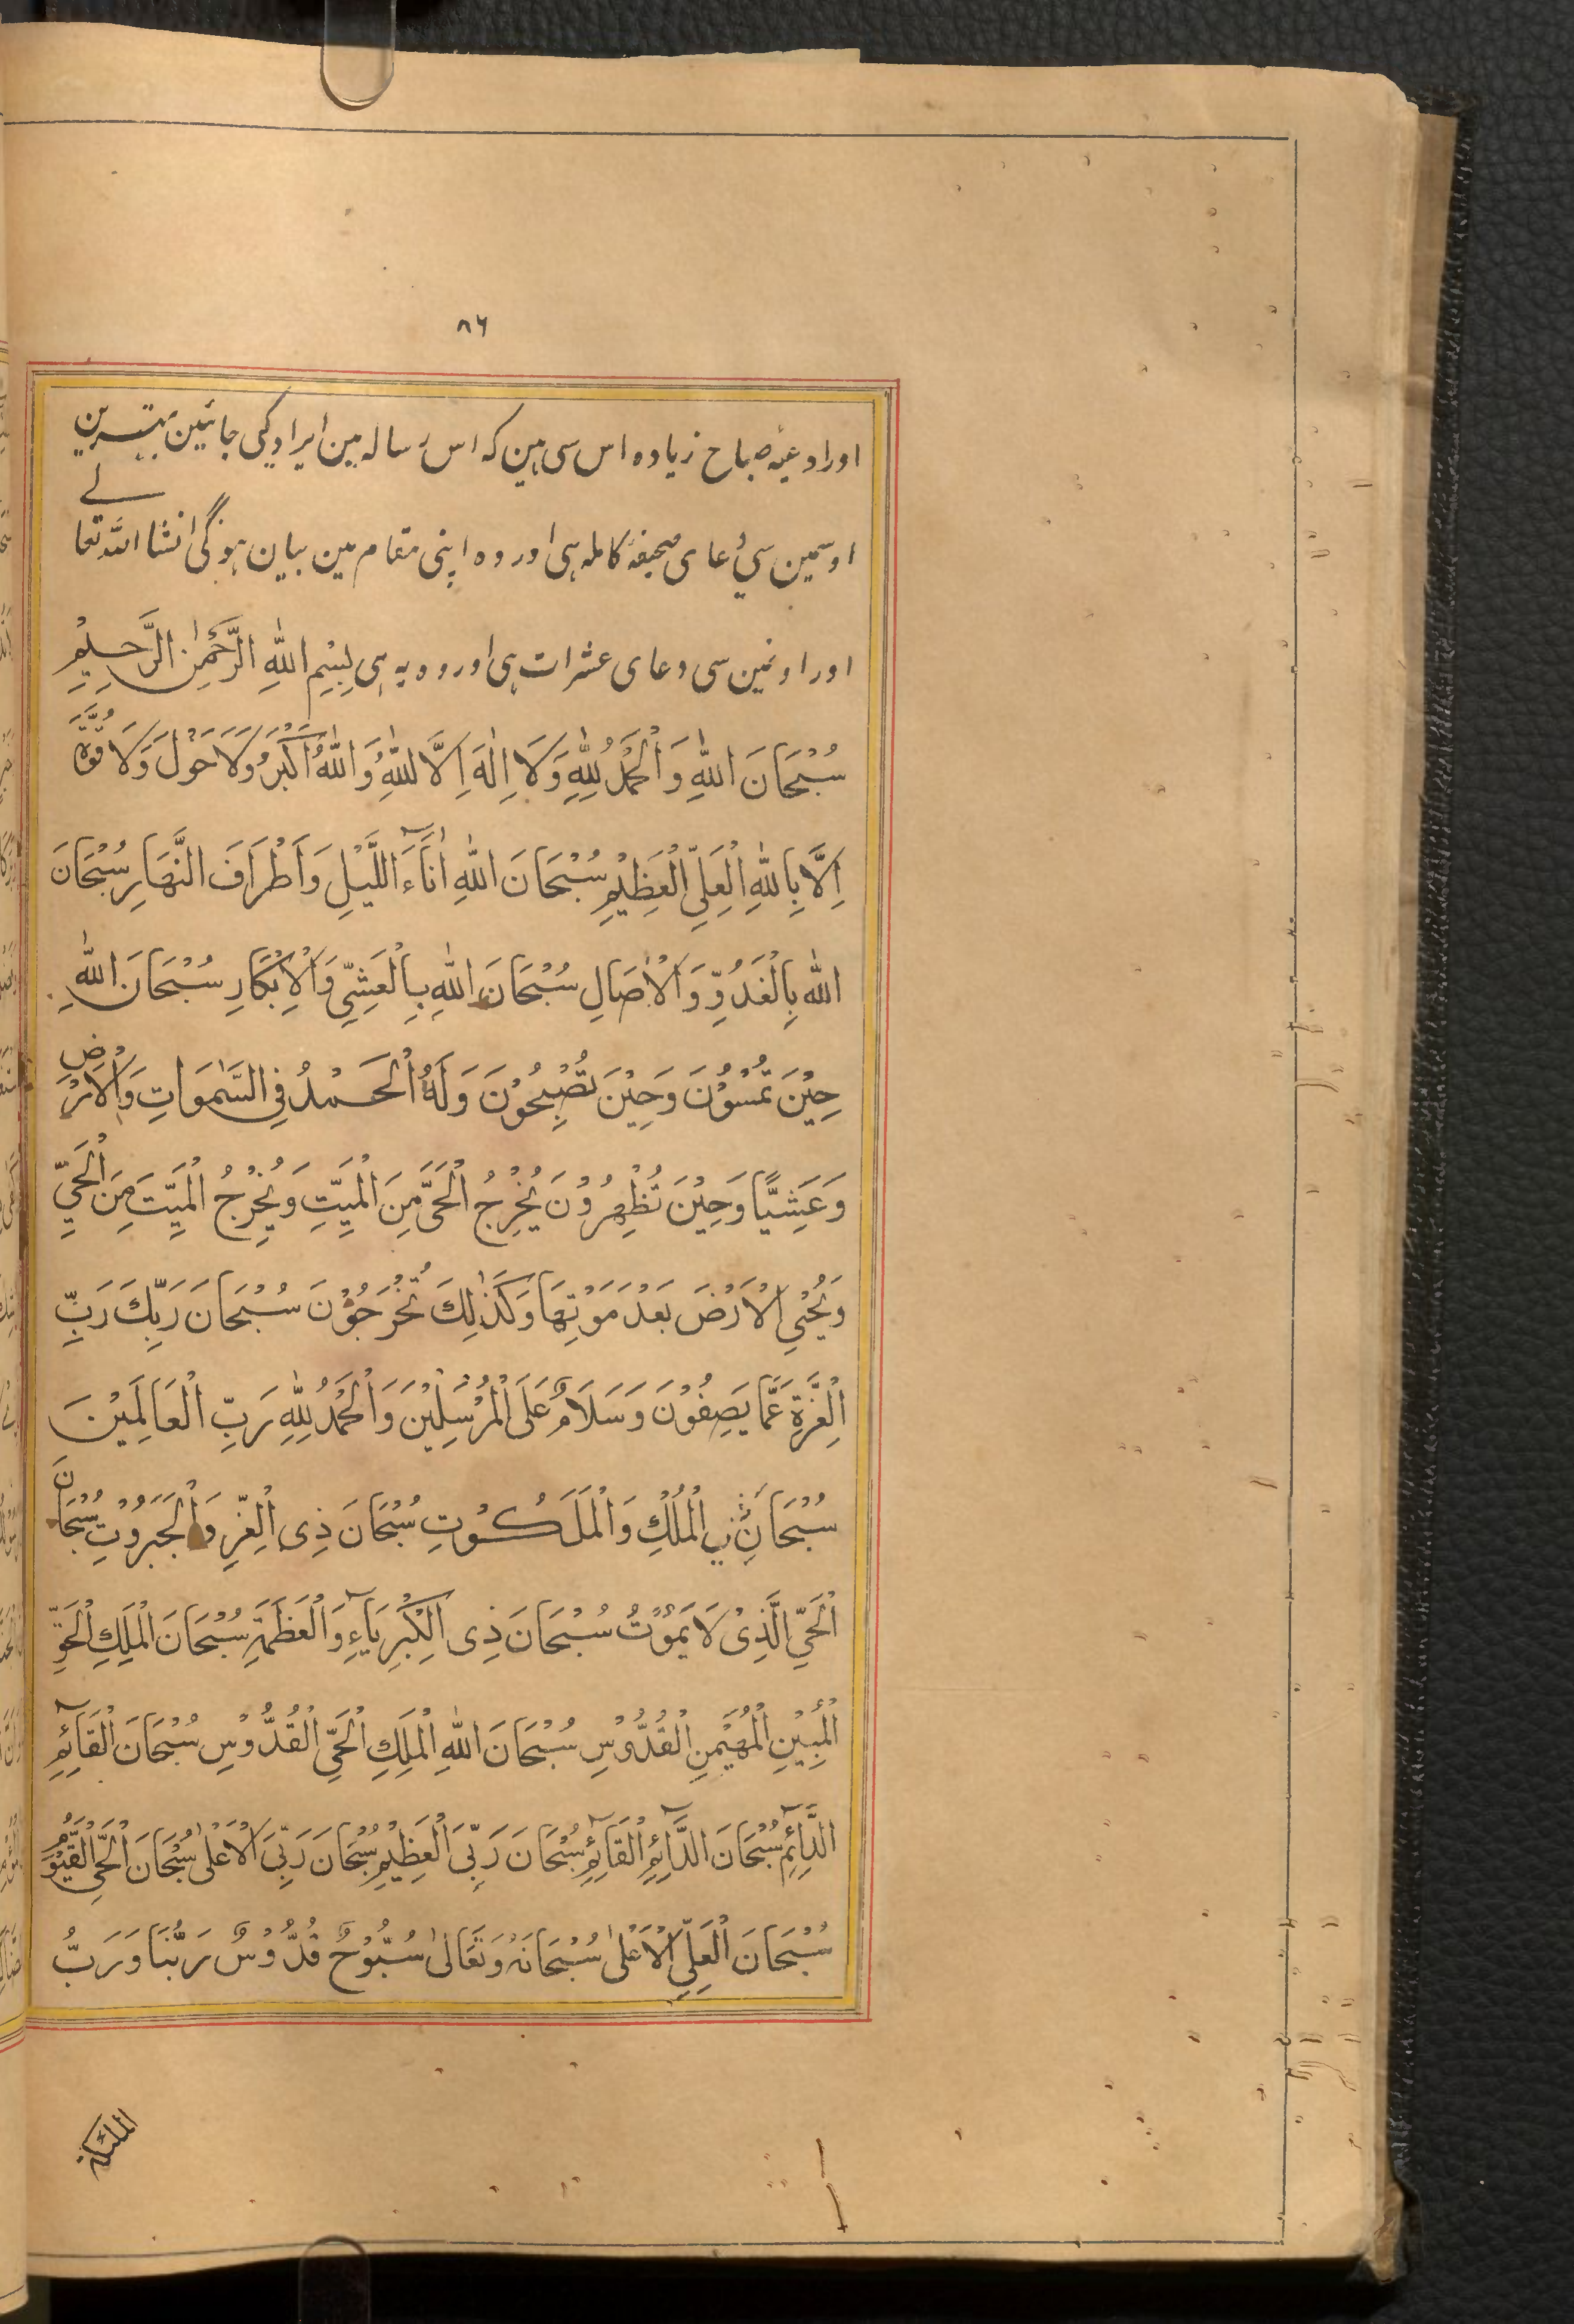 ٨٦
اور ادعیۂ صباح زیادہ اس سی ہین کہ اس رسالہ مین ایراد کیی جائین بہترین
اوسمین سی دعای صحیفۂ کاملہ ہی اور وہ اپنی مقام مین بیان ہوگی انشا اللہ تعالے
اور اونمین سی دعای عشرات ہی اور وہ یہ ہی بِسْمِ اللّٰهِ الرَّحْمٰنِ الرَّحِيْمِ
سُبْحَانَ اللّٰهِ وَ الْحَمْدُ لِلّٰهِ وَلَا اِلٰهَ اِلَّا اللّٰهُ وَ اللّٰهُ اَكْبَرُ وَلَا حَوْلَ وَلَا قُوَّةَ
اِلَّا بِاللّٰهِ الْعَلِيِّ الْعَظِيْمِ سُبْحَانَ اللّٰهِ اٰنَآءَ اللَّيْلِ وَاَطْرَافَ النَّهَارِ سُبْحَانَ
اللّٰهِ بِالْغُدُوِّ وَالْاٰصَالِ سُبْحَانَ اللّٰهِ بِالْعَشِيِّ وَالْاِبْكَارِ سُبْحَانَ اللّٰهِ
حِيْنَ تُمْسُوْنَ وَحِيْنَ تُصْبِحُوْنَ وَلَهُ الْحَمْدُ فِي السَّمٰوَاتِ وَالْاَرْضِ
وَعَشِيًّا وَحِيْنَ تُظْهِرُوْنَ يُخْرِجُ الْحَيَّ مِنَ الْمَيِّتِ وَيُخْرِجُ الْمَيِّتَ مِنَ الْحَيِّ
وَيُحْيِ الْاَرْضَ بَعْدَ مَوْتِهَا وَكَذٰلِكَ تُخْرَجُوْنَ سُبْحَانَ رَبِّكَ رَبِّ
الْعِزَّةِ عَمَّا يَصِفُوْنَ وَسَلَامٌ عَلَى الْمُرْسَلِيْنَ وَالْحَمْدُ لِلّٰهِ رَبِّ الْعَالَمِيْنَ
سُبْحَانَ ذِي الْمُلْكِ وَالْمَلَكُوْتِ سُبْحَانَ ذِي الْعِزِّ وَالْجَبَرُوْتِ سُبْحَانَ
الْحَيِّ الَّذِيْ لَا يَمُوْتُ سُبْحَانَ ذِي الْكِبْرِيَآءِ وَالْعَظَمَةِ سُبْحَانَ الْمَلِكِ الْحَقِّ
الْمُبِيْنِ الْمُهَيْمِنِ الْقُدُّوْسِ سُبْحَانَ اللّٰهِ الْمَلِكِ الْحَيِّ الْقُدُّوْسِ سُبْحَانَ الْقَآئِمِ
الدَّآئِمِ سُبْحَانَ الدَّآئِمِ الْقَآئِمِ سُبْحَانَ رَبِّيَ الْعَظِيْمِ سُبْحَانَ رَبِّيَ الْاَعْلٰى سُبْحَانَ الْحَيِّ الْقَيُّوْمِ
سُبْحَانَ الْعَلِيِّ الْاَعْلٰى سُبْحَانَهٗ وَتَعَالٰى سُبُّوْحٌ قُدُّوْسٌ رَبُّنَا وَرَبُّ
الملئكة